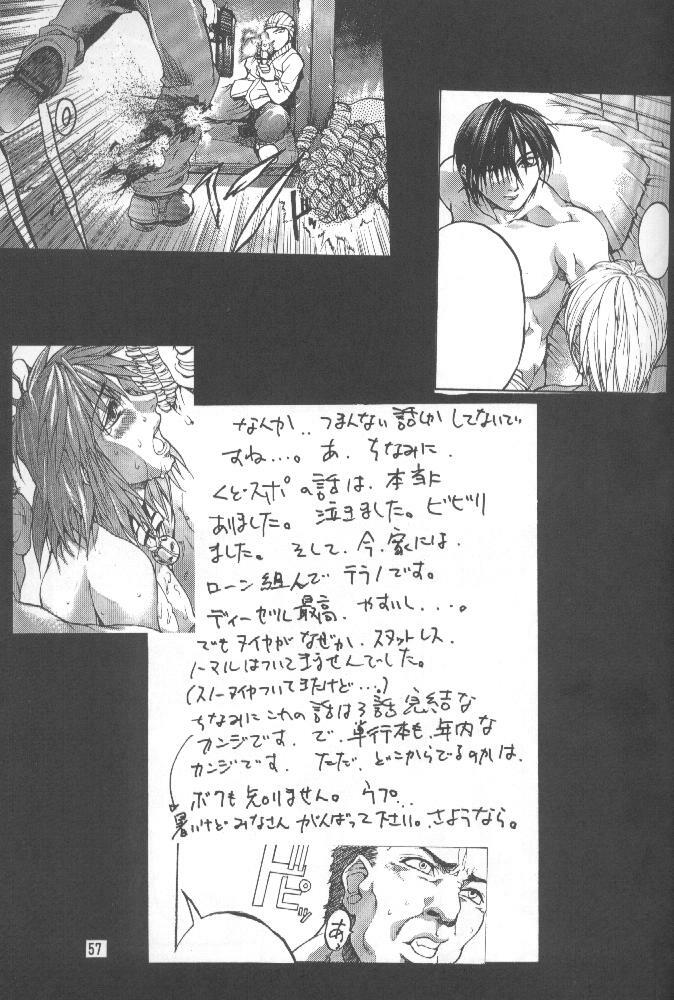 なんか‥つまんない話しか してないで
すね…。あ、ちなみに、
くど・スポ の話は、本当に
ありました。泣きました。ビビリ
ました。そして、今、家には、
ローン組んで テラノです。
ディーゼル最高、やすいし…。
でもタイヤがなぜか、スタットレス、
ノーマルはついてませんでした。
(スノータイヤついてきたけど…。)
ちなみにこれの話は3話完結な
カンジです。で、単行本も、年内な
カンジです。ただ、どこからでるのかは、
ボクも知りません。ウプ…
暑いけど みなさん がんばって下さい。さようなら。
ピッ
あ、
57